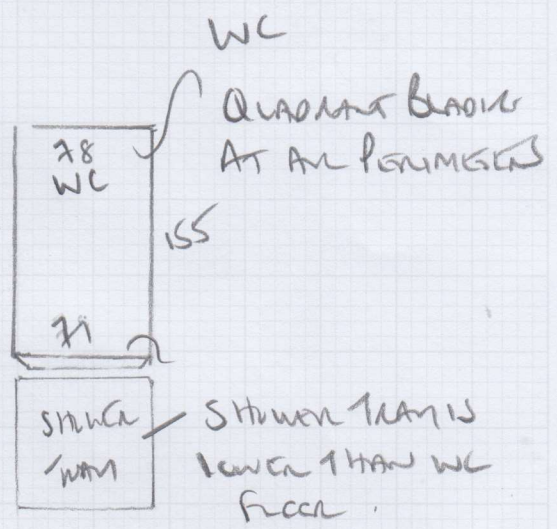 WC
QUADRANT BEADING
AT ALL PERIMETERS
78
WC
155
71
SHOWER
TRAY
SHOWER TRAY IS
LOWER THAN WC
FLOOR.